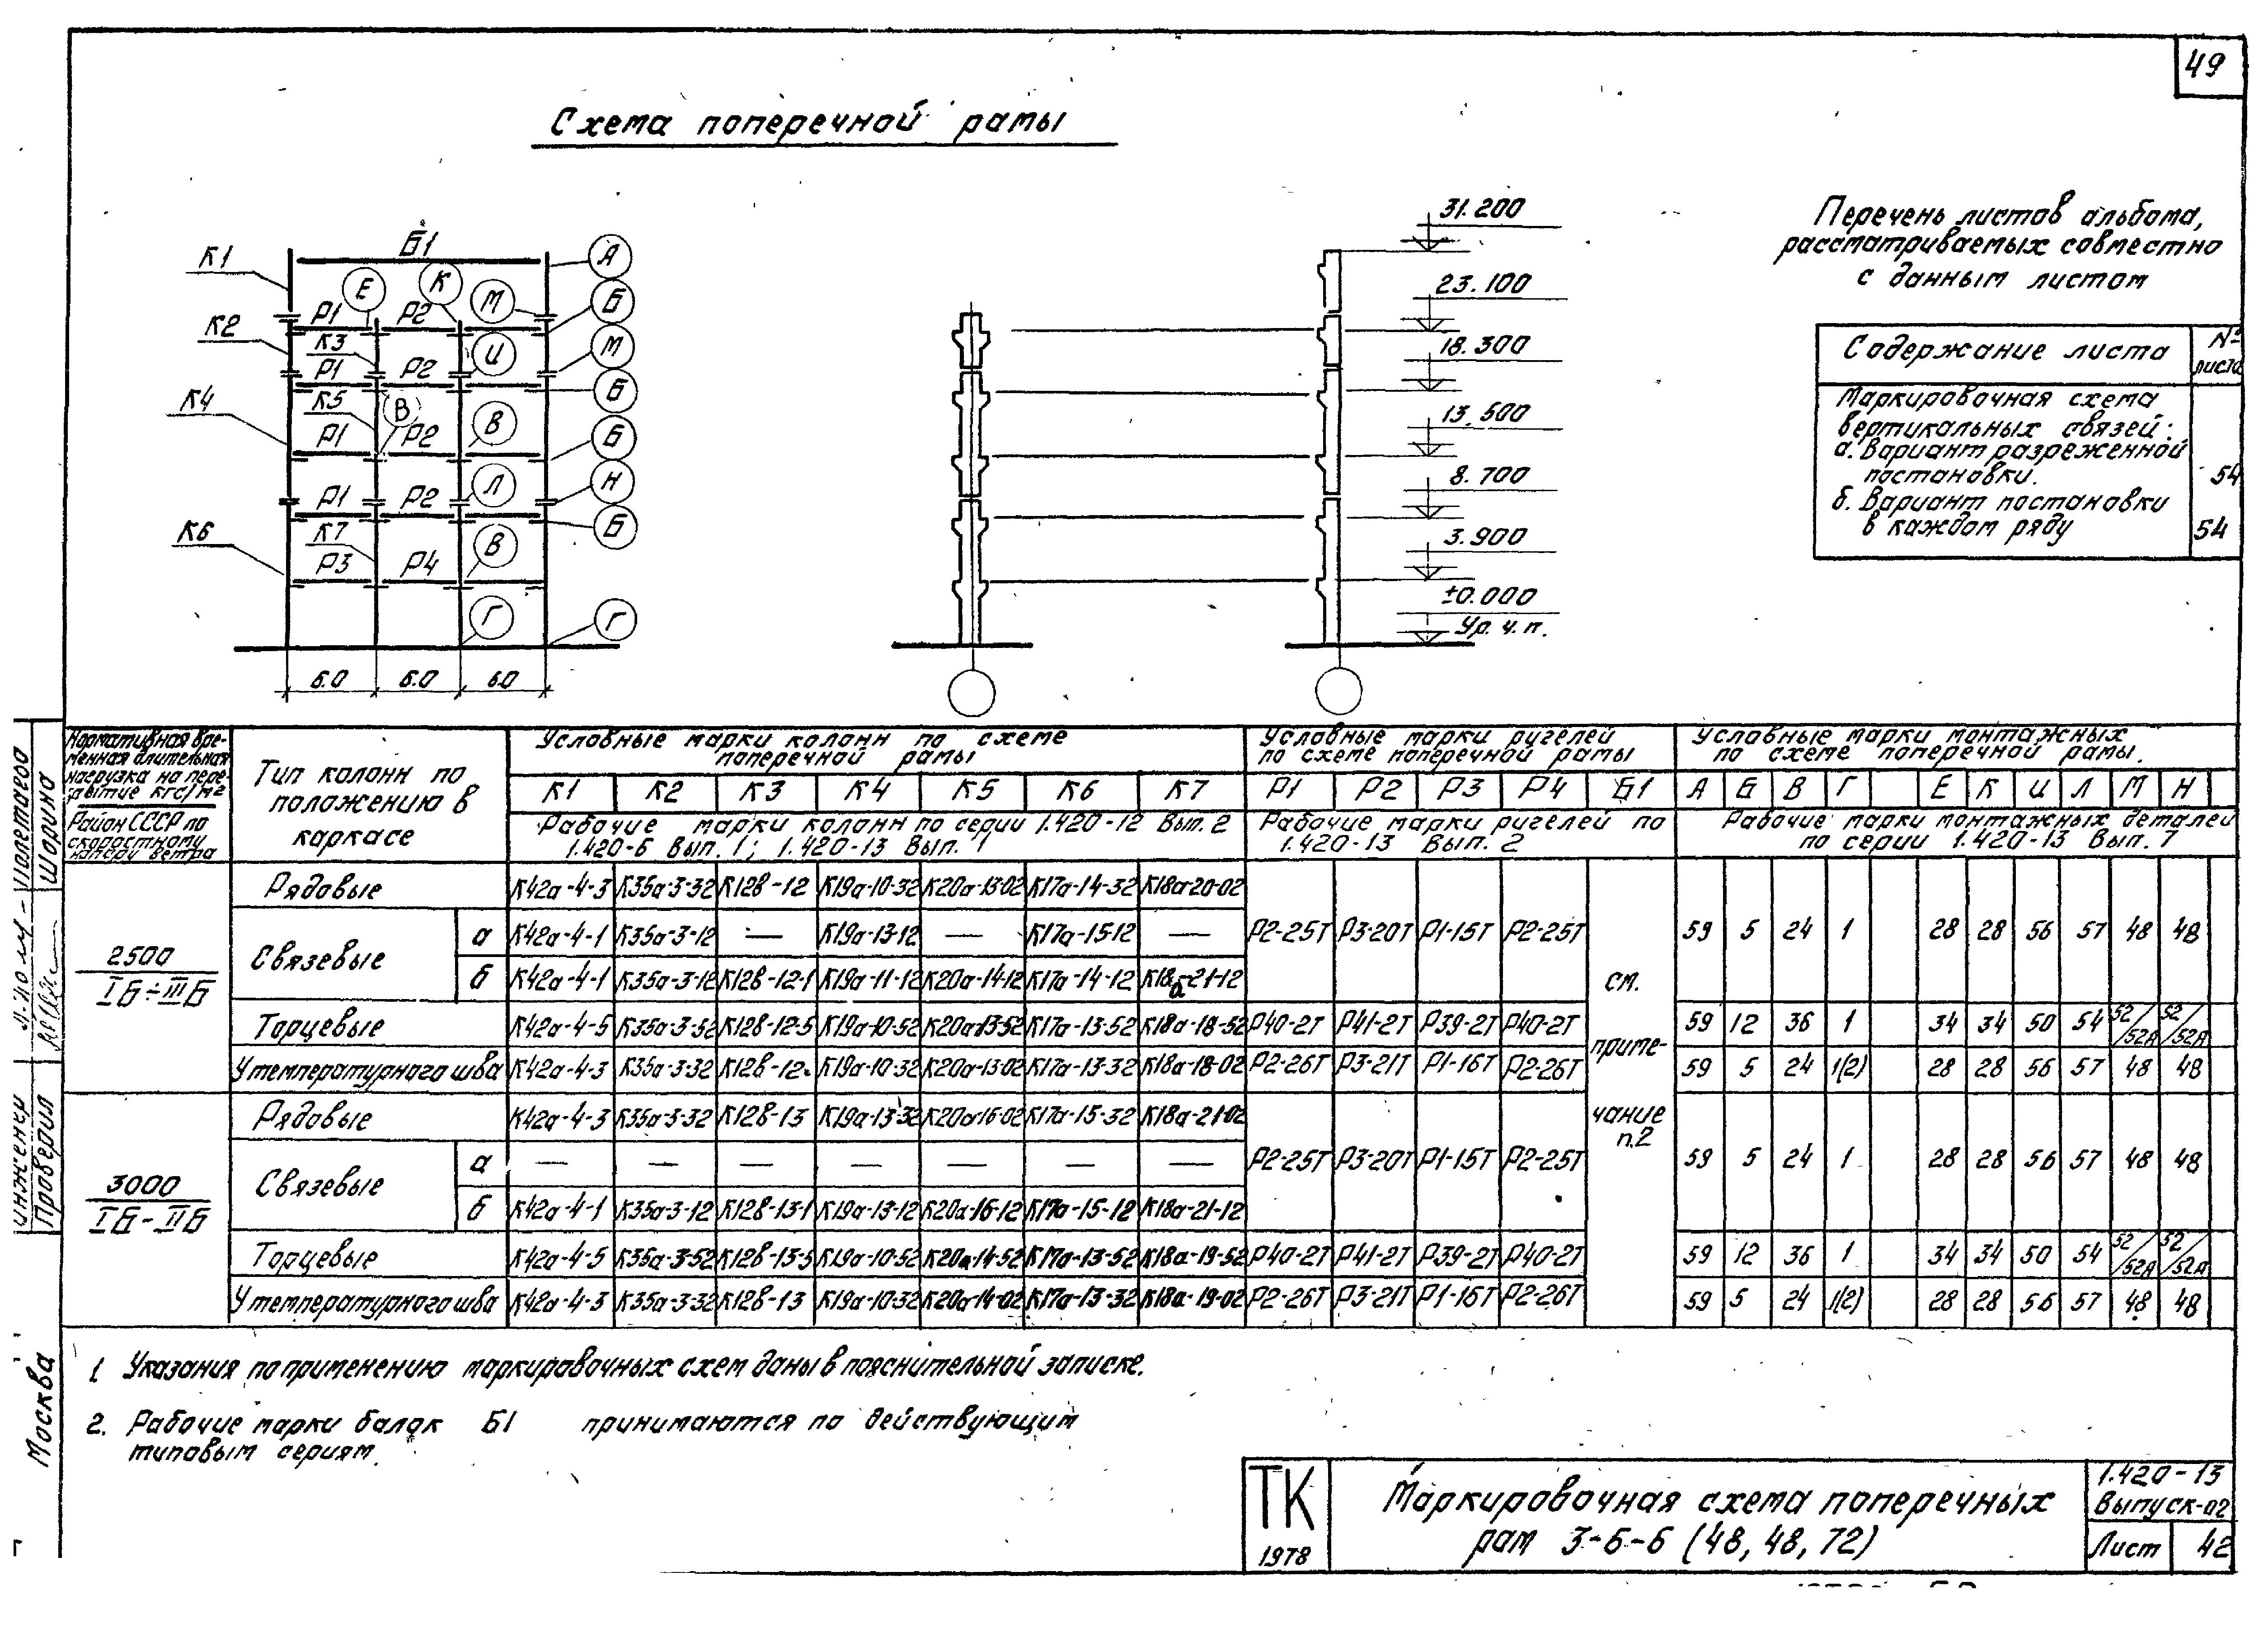 49
Схема поперечной рамы
К1
К2
К4
К6
Б1
Е
К
М
Р1
Р2
К3
И
Р1
Р2
К5
В
В
Р1
Р2
Р1
Р2
Л
К7
В
Р3
Р4
Г
А
Б
М
Б
Б
Н
Б
Г
6.0
6.0
6.0
31.200
23.100
18.300
13.500
8.700
3.900
±0.000
Ур. ч. п.
Перечень листов альбома,
рассматриваемых совместно
с данным листом
Содержание листа
№ листа
Маркировочная схема
вертикальных связей:
а. Вариант разреженной
постановки.
54
б. Вариант постановки
в каждом ряду
54
Нормативная вре-
менная длительная
нагрузка на пере-
рытие кгс/м2
Район СССР по
скоростному
напору ветра
Тип колонн по
положению в
каркасе
Условные марки колонн по схеме
поперечной рамы
Условные марки ригелей
по схеме поперечной рамы
Условные марки монтажных
по схеме поперечной рамы.
К1 К2 К3 К4 К5 К6 К7 Р1 Р2 Р3 Р4 Б1 А Б В Г Е К И Л М Н
Рабочие марки колонн по серии 1.420-12 Вып. 2
1.420-6 Вып. 1; 1.420-13 Вып. 1
Рабочие марки ригелей по
1.420-13 Вып. 2
Рабочие марки монтажных деталей
по серии 1.420-13 Вып. 7
2500
IБ÷IIIБ
Рядовые К42а-4-3 К35а-3-32 К12в-12 К19а-10-32 К20а-13-02 К17а-14-32 К18а-20-02
Связевые
а К42а-4-1 К35а-3-12 — К19а-13-12 — К17а-15-12 —
Р2-25Т Р3-20Т Р1-15Т Р2-25Т 59 5 24 1 28 28 56 57 48 48
б К42а-4-1 К35а-3-12 К12в-12-1 К19а-11-12 К20а-14-12 К17а-14-12 К18а-21-12
Торцевые К42а-4-5 К35а-3-52 К12в-12-5 К19а-10-52 К20а-13-52 К17а-13-52 К18а-18-52 Р40-2Т Р41-2Т Р39-2Т Р40-2Т 59 12 36 1 34 34 50 54 52/52А 52/52А
У температурного шва К42а-4-3 К35а-3-32 К12в-12 К19а-10-32 К20а-13-02 К17а-13-32 К18а-18-02 Р2-26Т Р3-21Т Р1-16Т Р2-26Т 59 5 24 1(2) 28 28 56 57 48 48
см.
приме-
чание
п.2
3000
IБ-IIБ
Рядовые К42а-4-3 К35а-3-32 К12в-13 К19а-13-32 К20а-16-02 К17а-15-32 К18а-21-02
Связевые
а — — — — — — —
Р2-25Т Р3-20Т Р1-15Т Р2-25Т 59 5 24 1 28 28 56 57 48 48
б К42а-4-1 К35а-3-12 К12в-13-1 К19а-13-12 К20а-16-12 К17а-15-12 К18а-21-12
Торцевые К42а-4-5 К35а-3-52 К12в-13-5 К19а-10-52 К20а-14-52 К17а-13-52 К18а-19-52 Р40-2Т Р41-2Т Р39-2Т Р40-2Т 59 12 36 1 34 34 50 54 52/52А 52/52А
У температурного шва К42а-4-3 К35а-3-32 К12в-13 К19а-10-32 К20а-14-02 К17а-13-32 К18а-19-02 Р2-26Т Р3-21Т Р1-16Т Р2-26Т 59 5 24 1(2) 28 28 56 57 48 48
1. Указания по применению маркировочных схем даны в пояснительной записке.
2. Рабочие марки балок Б1 принимаются по действующим
типовым сериям.
ТК
1978
Маркировочная схема поперечных
рам 3-6-6 (48, 48, 72)
1.420-13
Выпуск-02
Лист 42
инженер
Проверил
Шорина
Москва